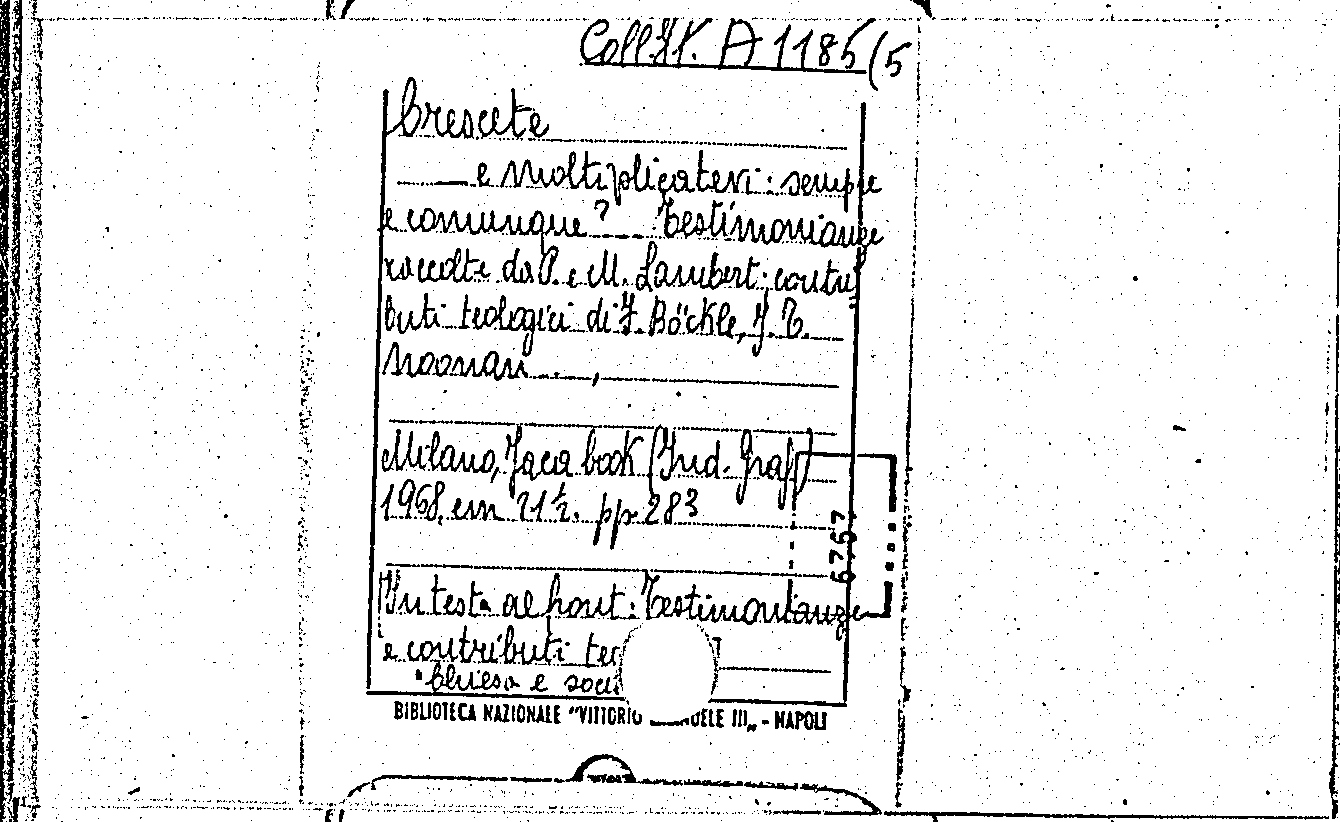 Coll. It. A 1185/5
Crescete
e moltiplicatevi: sempre
e comunque? Testimonianze
raccolte da P. e M. Lambert; contri
buti teologici di F. Böckle, J. T.
Noonan ... ,
Milano, Jaca book (Ind. Graf)
1968, cm 21½. pp. 283
6767
[In testa al front.: Testimonianze
e contributi teo ]
"Chiesa e soci
BIBLIOTECA NAZIONALE "VITTORIO UELE III„ - NAPOLI